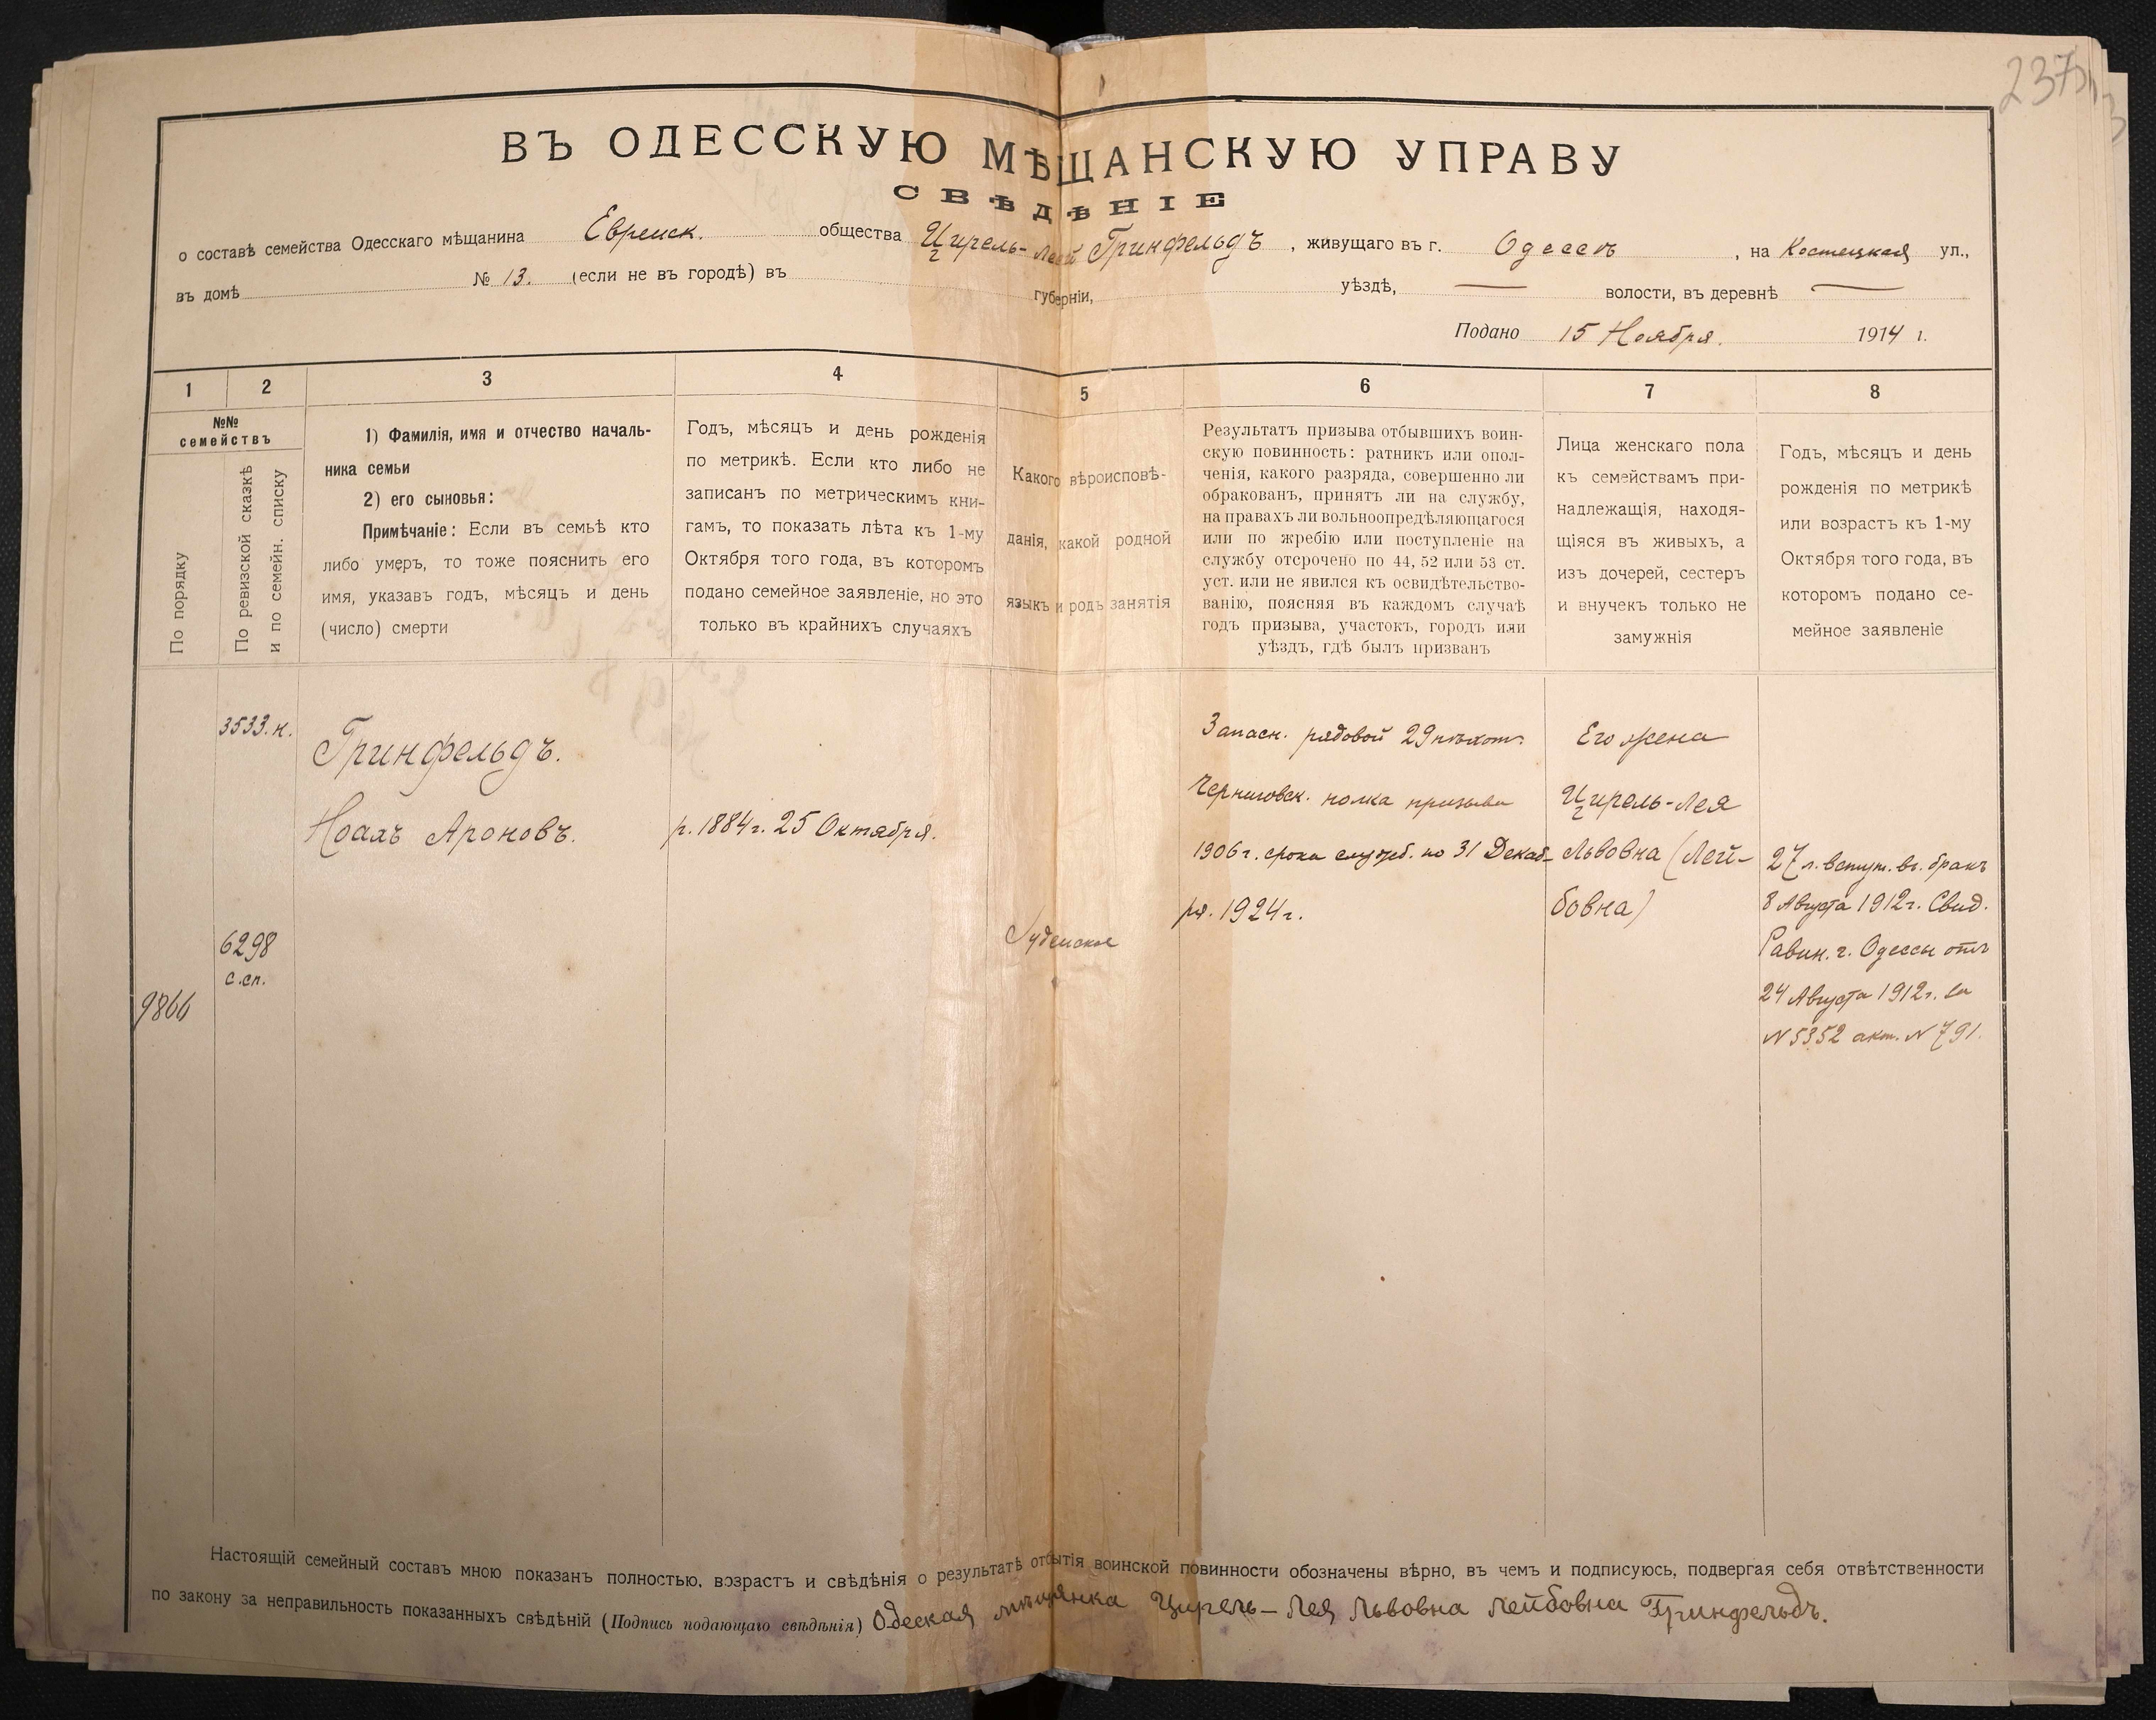 237
ВЪ ОДЕССКУЮ МѢЩАНСКУЮ УПРАВУ
СВѢДѢНІЕ
о составѣ семейства Одесскаго мѣщанина Евреиск. общества Цирель-Леей Гринфельдъ, живущаго въ г. Одессѣ, на Костецкая ул.,
въ домѣ № 13. (если не въ городѣ) въ губерніи, уѣздѣ, — волости, въ деревнѣ —
Подано 15 Ноября. 1914 г.
1 2 3 4 5 6 7 8
№№
семействъ
По порядку
По ревизской сказкѣ
и по семейн. списку
1) Фамилія, имя и отчество началь-
ника семьи
2) его сыновья:
Примѣчаніе: Если въ семьѣ кто
либо умеръ, то тоже пояснить его
имя, указавъ годъ, мѣсяцъ и день
(число) смерти
Годъ, мѣсяцъ и день рожденія
по метрикѣ. Если кто либо не
записанъ по метрическимъ кни-
гамъ, то показать лѣта къ 1-му
Октября того года, въ которомъ
подано семейное заявленіе, но это
только въ крайнихъ случаяхъ
Какого вѣроисповѣ-
данія, какой родной
языкъ и родъ занятія
Результатъ призыва отбывшихъ воин-
скую повинность: ратникъ или опол-
ченія, какого разряда, совершенно ли
обракованъ, принятъ ли на службу,
на правахъ ли вольноопредѣляющагося
или по жребію или поступленіе на
службу отсрочено по 44, 52 или 53 ст.
уст. или не явился къ освидѣтельство-
ванію, поясняя въ каждомъ случаѣ
годъ призыва, участокъ, городъ или
уѣздъ, гдѣ былъ призванъ
Лица женскаго пола
къ семействамъ при-
надлежащія, находя-
щіяся въ живыхъ, а
изъ дочерей, сестеръ
и внучекъ только не
замужнія
Годъ, мѣсяцъ и день
рожденія по метрикѣ
или возрастъ къ 1-му
Октября того года, въ
которомъ подано се-
мейное заявленіе
9866
3533. н.
6298
с.сп.
Гринфельдъ.
Ноахъ Ароновъ.
р. 1884 г. 25 Октября.
Іудейское
Запасн. рядовой 29 пѣхот.
Черниговск. полка призыва
1906 г. срока служб. по 31 Декаб-
ря. 1924 г.
Его жена
Цирель-Лея
Львовна (Лей-
бовна)
27 л. вступ. въ. бракъ
8 Августа 1912 г. Свид.
Равин. г. Одессы отъ
24 Августа 1912 г. за
N 5352 акт. N 791.
Настоящій семейный составъ мною показанъ полностью, возрастъ и свѣдѣнія о результатѣ отбытія воинской повинности обозначены вѣрно, въ чемъ и подписуюсь, подвергая себя отвѣтственности
по закону за неправильность показанныхъ свѣдѣній (Подпись подающаго свѣдѣнія) Одеская мѣщянка Цирель-Лея Львовна Лейбовна Гринфельдъ.